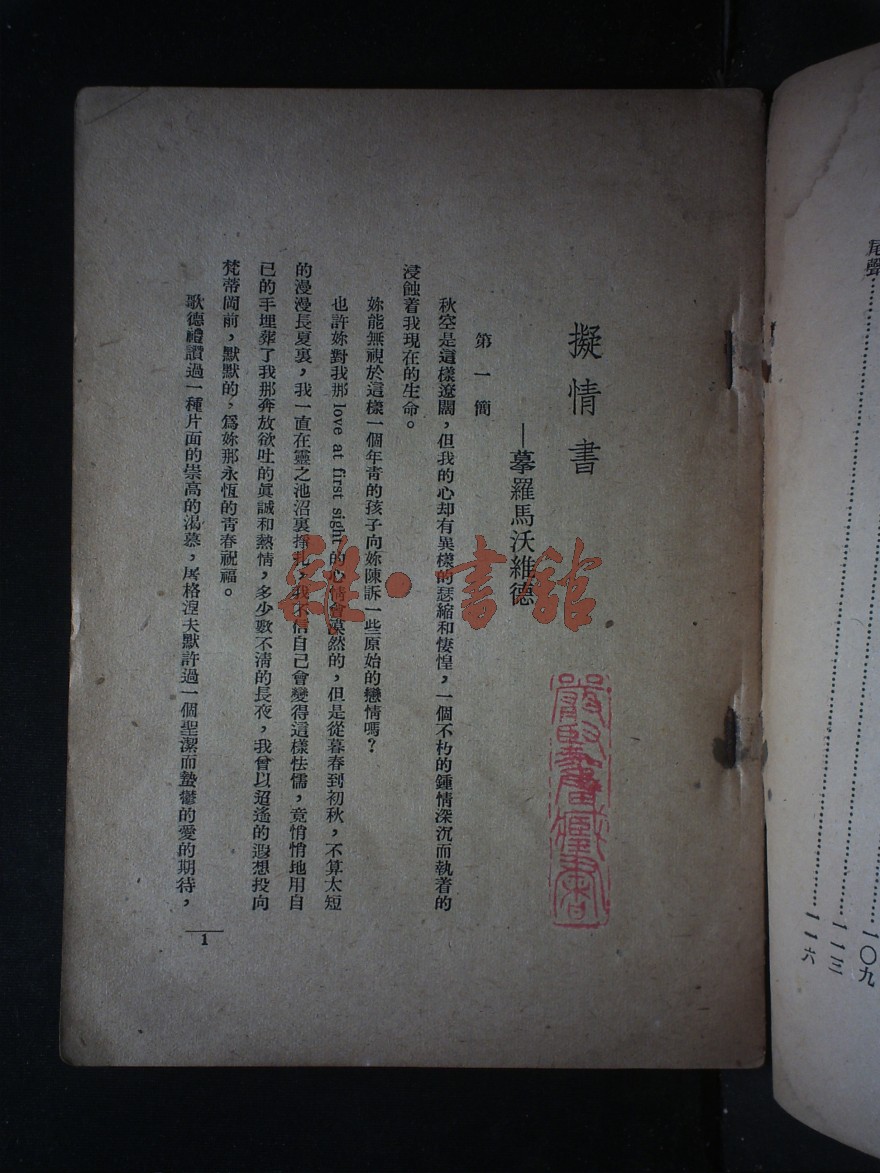 擬情書
—摹羅馬沃維德
第一簡
秋空是這樣遼闊，但我的心却有異樣的瑟縮和悽惶，一個不朽的鍾情深沉而執着的
浸蝕着我現在的生命。
妳能無視於這樣一個年青的孩子向妳陳訴一些原始的戀情嗎？
也許妳對我那 love at first sight 的心情會漠然的，但是從暮春到初秋，不算太短
的漫漫長夏裏，我一直在靈之池沼裏掙扎，我不信自己會變得這樣怯懦，竟悄悄地用自
已的手埋葬了我那奔放欲吐的眞誠和熱情，多少數不淸的長夜，我曾以迢遙的遐想投向
梵蒂岡前，默默的，爲妳那永恆的靑春祝福。
歌德禮讚過一種片面的崇高的渴慕，屠格涅夫默許過一個聖潔而蟄鬱的愛的期待，
1
雜·書館
尾聲
一〇九
一一三
一一六